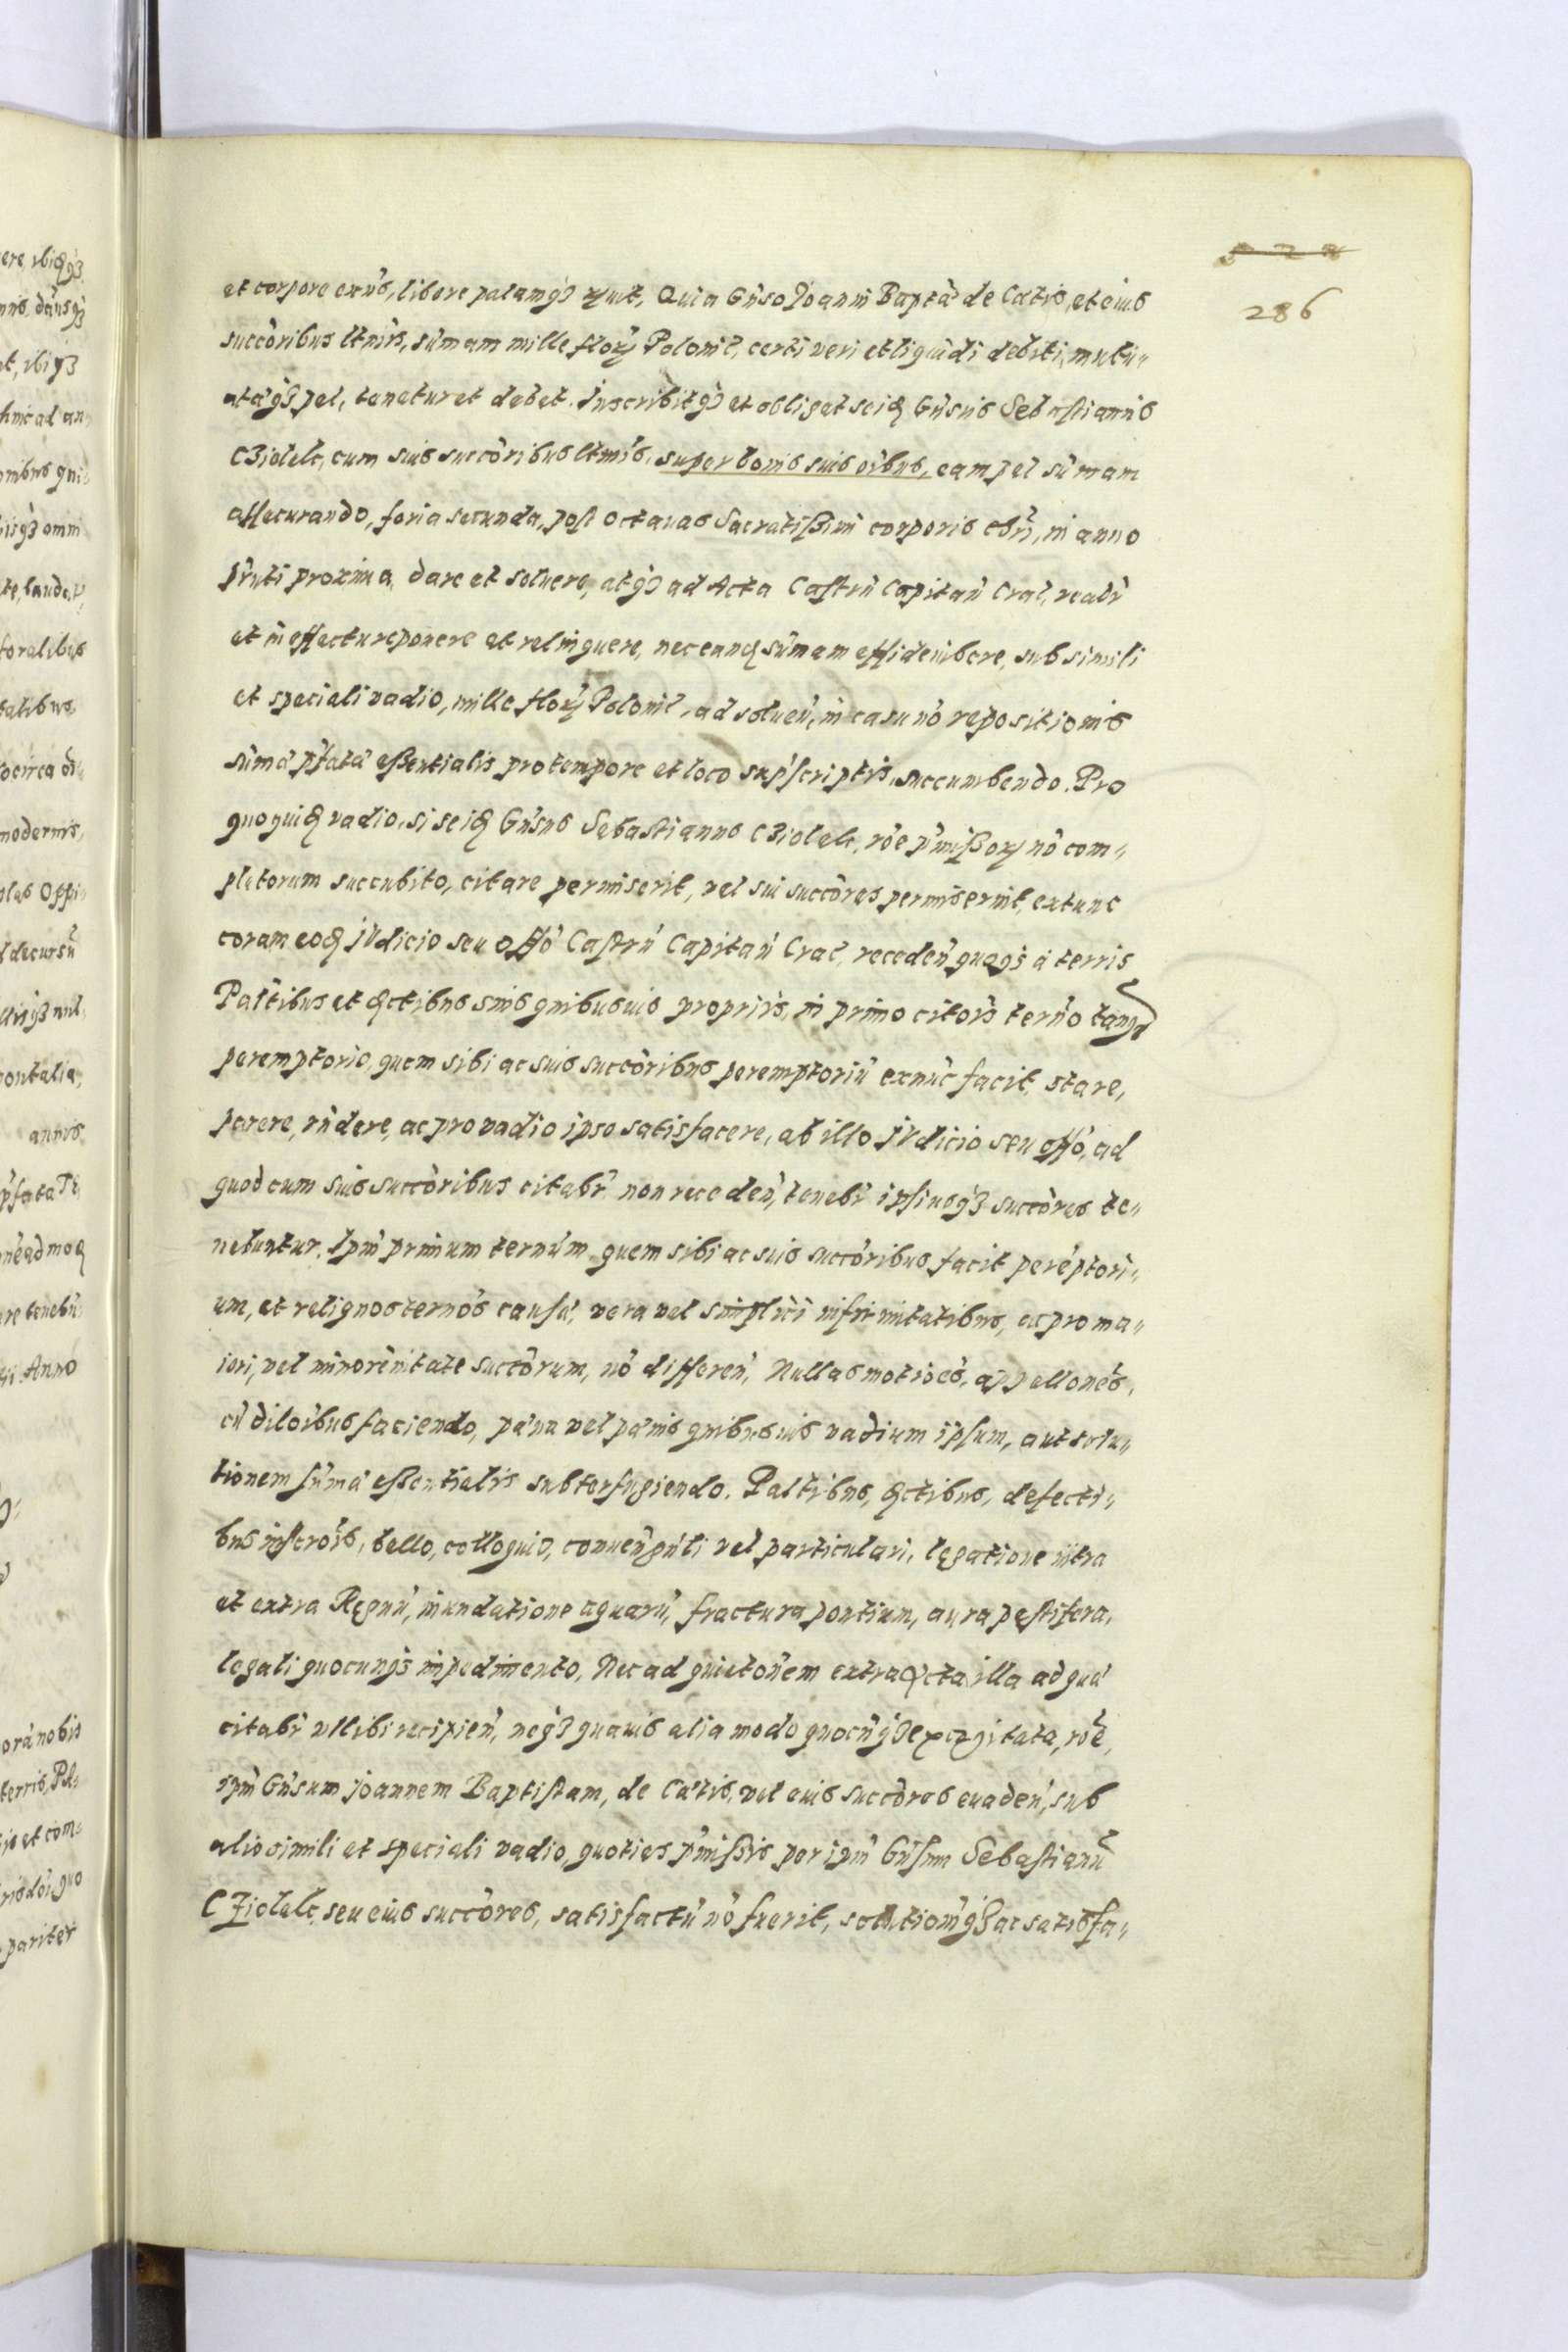 286
et corpore exñs, libere palamq3 rcuit, Quia Gñso Joanni Baptã de Catis, et eius
succõribus ltmis, sũmam mille floꝝ Polonic̃, certi veri et liquidi debiti, mutu„
atãq3 pec̃, tenetur et debet. Inscribitq3 et obligat se idꝫ Gñsus Sebastianus
C3iolek, cum suis succõribus ltmis, super bonis suis oĩbus, eam pec̃ sũmam
assecurando, feria secunda, post octauas Sacratißimi corporis chrĩ, in anno
p̃nti proxima, dare et soluere, atq3 ad Acta Castrñ Capitañ Crac̃, realr̃
et in effectu reponere et relinquere, nec eandꝫ sũmam effidembere, sub simili
et speciali vadio, mille floꝝ Polonic̃, ad solueñ, in casu nõ repositionis
sũmã p̃fatã eßentialis pro tempore et loco sup̃scriptis, succumbendo. Pro
quo quidꝫ vadio, si se idꝫ Gñsus Sebastianus C3iolek, rõe p̃mißoꝝ nõ com„
pletorum succubito, citare permiserit, vel sui succõres permiserint, extunc
coram eodꝫ iudicio seu offõ Castrñ Capitañ Crac̃, recedeñ quaq3 à terris
Paltibus et dictibus suis quibusuis propriis, in primo citõis termõ tanqꝫ
peremptorio, quem sibi ac suis succõribus peremptoriũ exnũc facit, stare,
parere, rñdere, ac pro vadio ipso satisfacere, ab illo iudicio seu offõ, ad
quod cum suis succõribus citabr̃ non recedeñ, tenebr̃ ipsiusq3 succõres te„
nebuntur. Ipm̃ primum termũm quem sibi ac suis succõribus facit perẽptori„
um, et reliquos termõs causã, vera vel simplici infirmitatibus, ac pro ma„
iori, vel minorẽnitate succõrum, nõ differeñ, Nullas motiões, appellones,
cũ diloĩbus faciendo, pæna vel pænis quibusuis vadium ipsum, aut solu„
tionem sũmã eßentialis subterfugiendo. Paltibus, dictibus, defecti„
bus inscrõis, bello, colloquio, conueñ gñli vel particulari, legatione intra
et extra Regnũ, inundatione aquarũ, fractura pontium, aura pestifera,
legali quocunq3 impedimento, Nec ad quietõnem extra Acta illa ad quã
citabr̃ ullibi recipieñ, neq3 quauis alia modo quocũq3 excogitata, rõe,
ipm̃ Gñsum Joannem Baptistam, de Catis, vel eius succõres euadeñ, sub
alio simili et speciali vadio, quoties p̃mißis per ipm̃ Gñsum Sebastianũ
C3iolek, seu eius succõres, satisfactũ nõ fuerit, solutiomq3 ac satisfa„